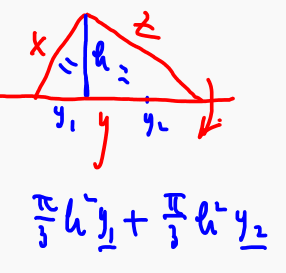 x z
h
y₁ y y₂
π/3 h² y₁ + π/3 h² y₂